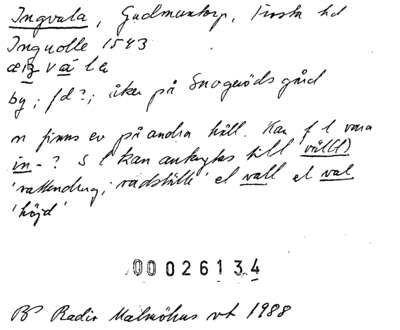 Ingvala, Gudmuntorp, Frosta hd
Inguolle 1543
æŋ v á l a
by; fd?; åker på Snogeröds gård
n finns ev på andra håll. Kan f l vara
in-? S l kan anknytas till vål(l)
'vattendrag; vadställe' el vall el val
'höjd'
00026134
BP Radio Malmöhus vt 1988